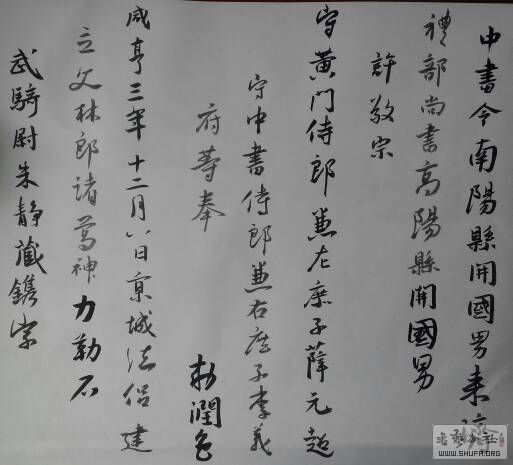 中書令南陽縣開國男来濟
禮部尚書高陽縣開國男
許敬宗
守黄門侍郎兼左庶子薛元超
守中書侍郎兼右庶子李義
府等奉
勑潤色
咸亨三年十二月八日京城法侣建
立文林郎諸葛神力勒石
武騎尉朱静藏鐫字
書法公社
WWW.SHUFA.ORG